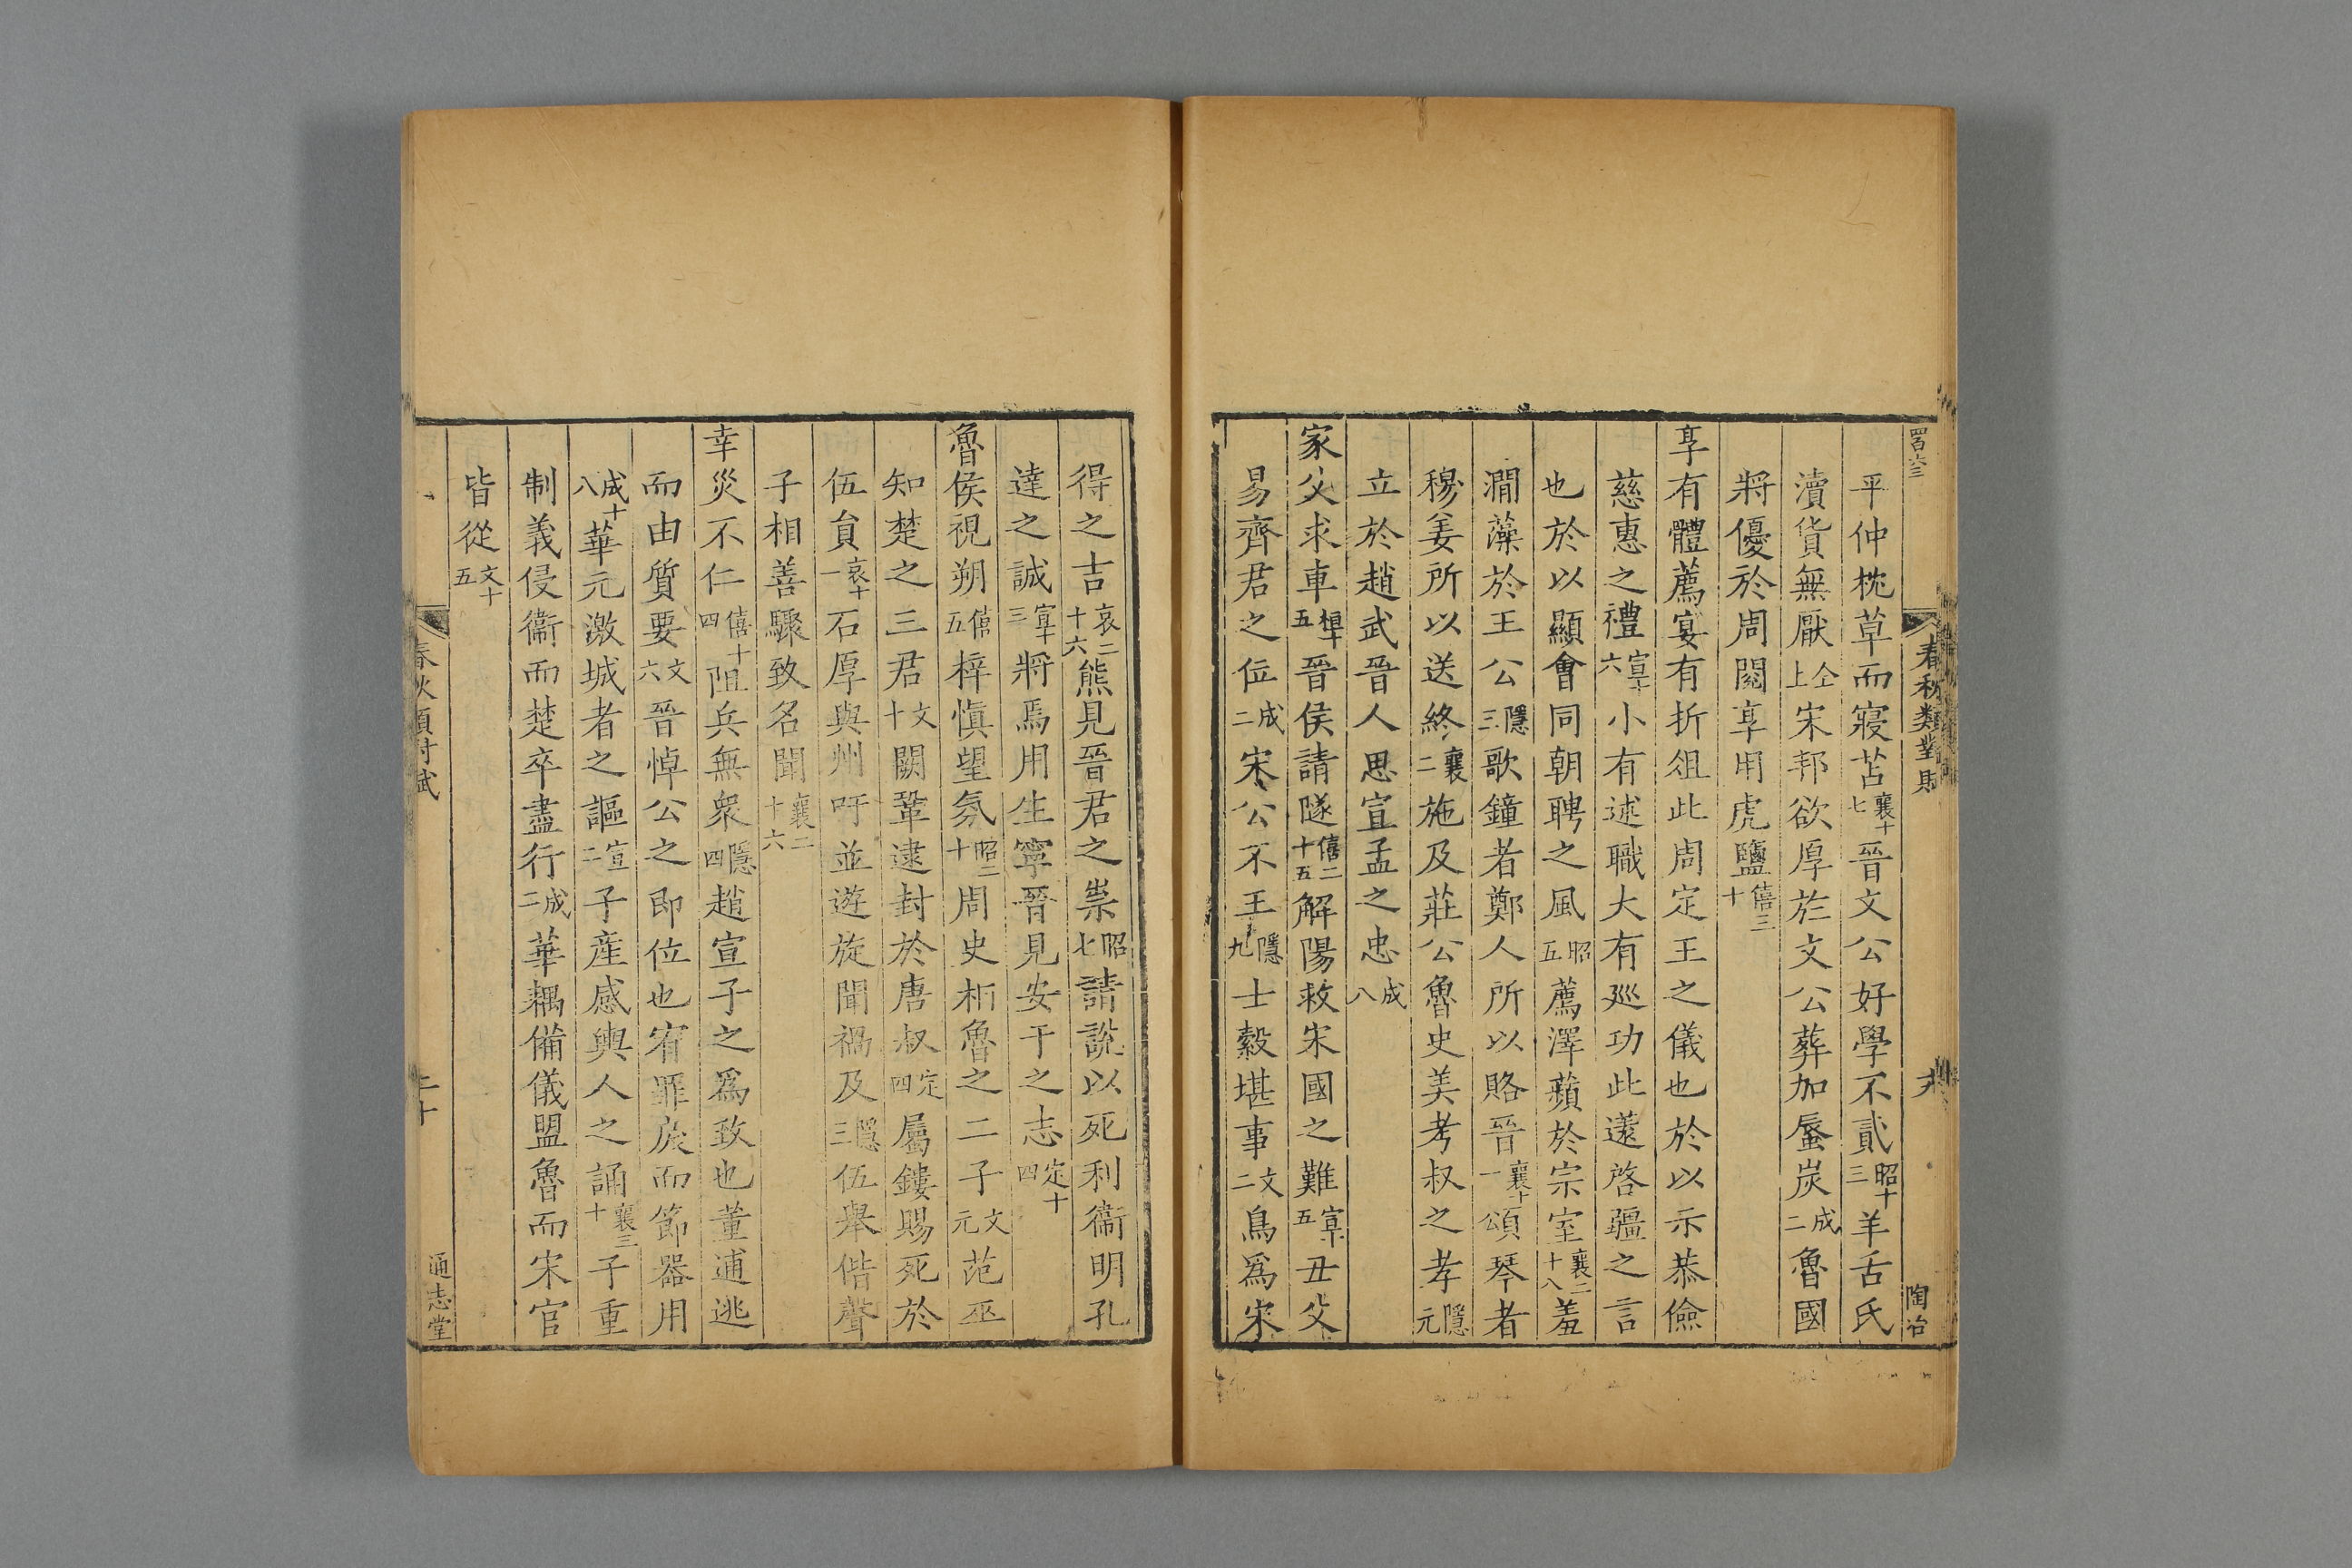 平仲枕草而寢苫襄十七晉文公好學不貳昭十三羊舌氏
瀆貨無厭仝上宋邦欲厚於文公葬加蜃炭成二魯國
將優於周閱享用虎鹽僖三十
享有體薦宴有折俎此周定王之儀也於以示恭儉
慈惠之禮宣十六小有述職大有廵功此薳啓疆之言
也於以顯會同朝聘之風昭五薦澤蘋於宗室襄二十八羞
澗藻於王公隱三歌鐘者鄭人所以賂晉襄十一頌琴者
穆姜所以送終襄二施及莊公魯史美考叔之孝隱元
立於趙武晉人思宣孟之忠成八
家父求車桓十五晉侯請隧僖二十五解陽救宋國之難宣十五丑父
易齊君之位成二宋公不王隱九士縠堪事文二鳥爲宋
春秋類對賦
陶冶
得之吉哀二十六熊見晉君之祟昭七請說以死利衞明孔
達之誠宣十三將焉用生寧晉見安于之志定十四
魯侯視朔僖五梓愼望氛昭二十周史析魯之二子文元范巫
知楚之三君文十闕鞏逮封於唐叔定四屬鏤賜死於
伍員哀十一石厚與州吁並遊旋聞禍及隱三伍舉偕聲
子相善驟致名聞襄二十六
幸災不仁僖十四阻兵無衆隱四趙宣子之爲政也董逋逃
而由質要文六晉悼公之即位也宥罪戾而節器用
成十八華元激城者之謳宣二子產感輿人之誦襄三十子重
制義侵衞而楚卒盡行成二華耦備儀盟魯而宋官
皆從文十五
春秋類對賦
二十
通志堂